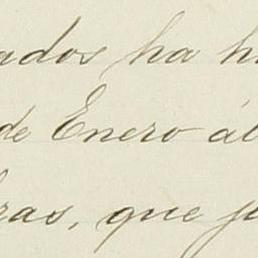 ados ha h
de Enero á
ras, que p